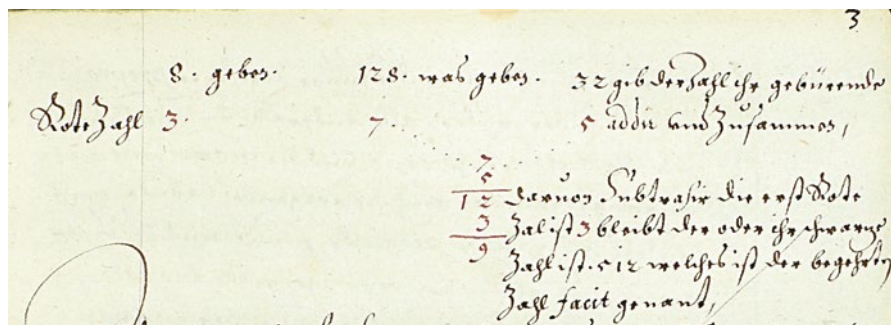 3
8. geben. 128. was geben. 32 gib der Zahl ihr gebürende
Rote Zahl 3. 7. 5 addir und Zusammen,
7
5
12 Daruon Subtrahir die erst Rote
3 Zal ist 3 bleibt der oder ihr schwartze
9 Zahl ist. 512 welches ist der begehrten
Zahl facit genant,